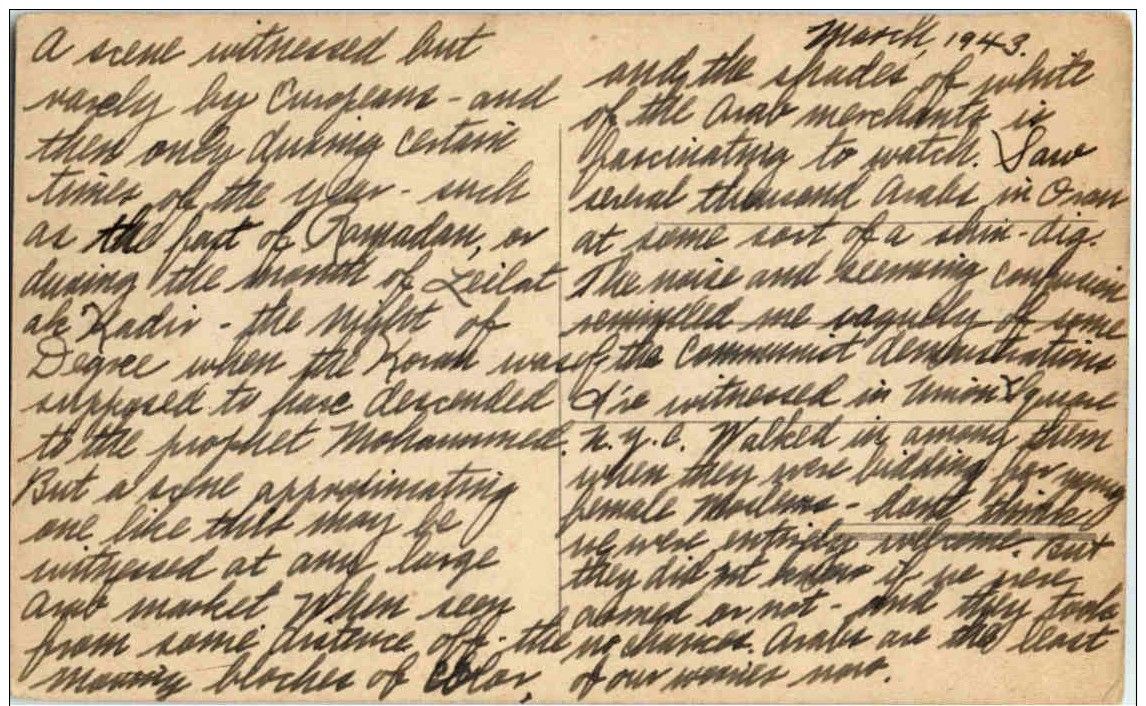 A scene witnessed but
rarely by Europeans - and
then only during certain
times of the year - such
as the fast of Ramadan, or
during the month of Leilat
ak Kadir - the night of
Degree when the Koran was
supposed to have descended
to the prophet Mohammed.
But a scene approximating
one like this may be
witnessed at any large
Arab market. When seen
from some distance off - the
moving bloches of color,
March, 1943.
and the shades of white
of the Arab merchants is
fascinating to watch. Saw
several thousand Arabs in Oran
at some sort of a shin-dig.
The noise and seeming confusion
reminded me vaguely of some
of the Communist demonstrations
I've witnessed in Union Square
N.Y.C. Walked in among them
when they were bidding for young
female Moslems - dont think
we were entirely welcome. But
they did not know if we were
armed or not - and they took
no chances. Arabs are the least
of our worries now.